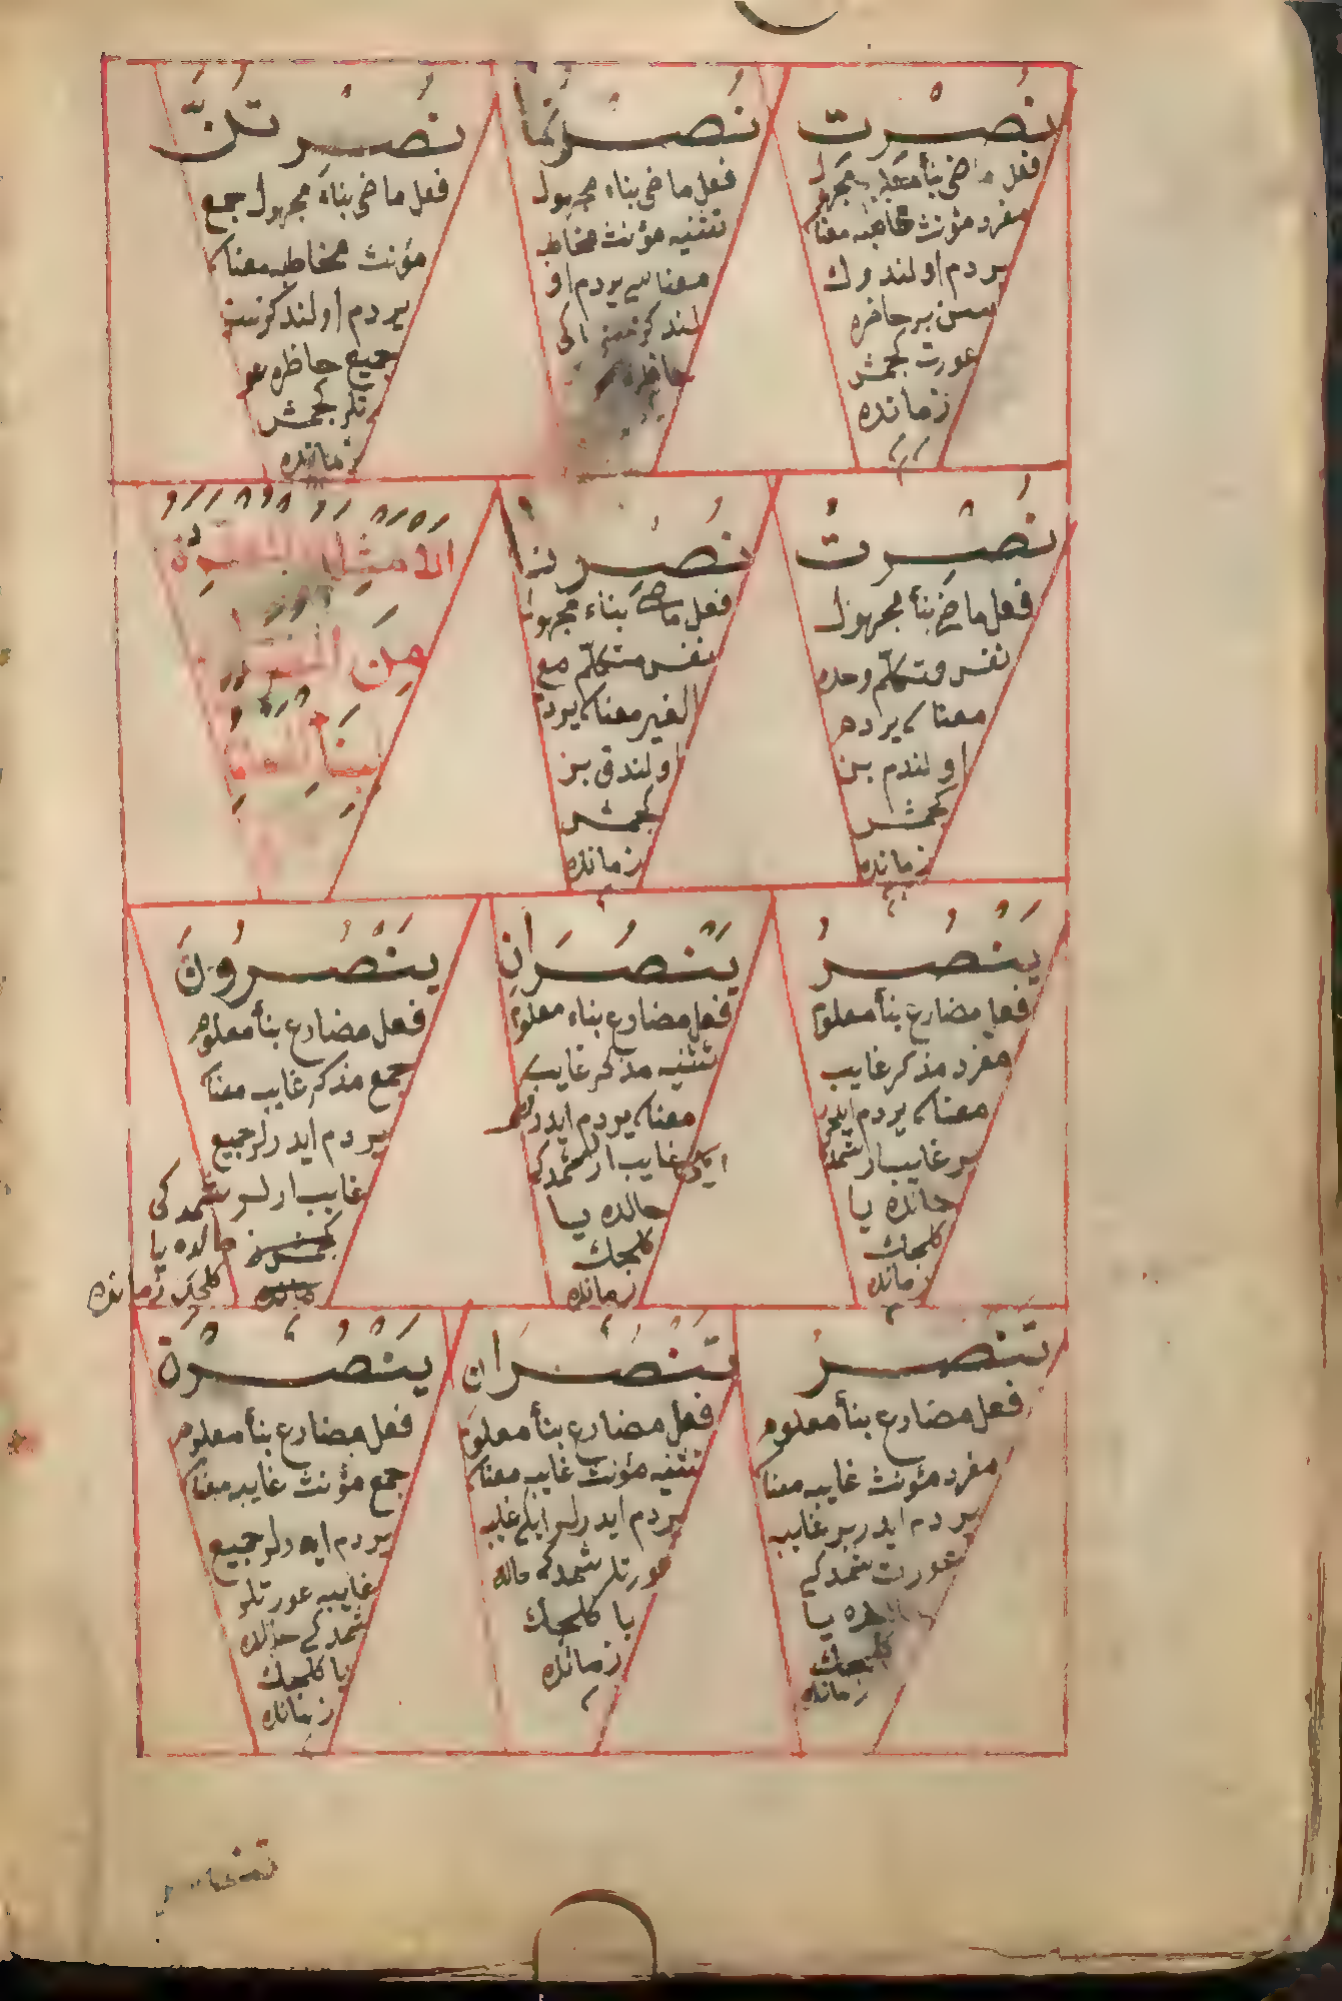 نُصِرْتِ
فعل ماضى بنأ مجهول
مفرد مؤنث مخاطبه معنا
يردم اولندوك
سن بر حاضره
عورت كجمش
زمانده
نُصِرْتُمَا
فعل ماضى بناء مجهول
تثنيه مؤنث مخاطبه
معناسى يردم او
لندكز سز ايكى
حاضره
نُصِرْتُنَّ
فعل ماضى بناء مجهول جمع
مؤنث مخاطبه معنا
يردم اولندكز سز
جميع حاظره عو
رتلر كجمش
زمانده
نُصِرْتُ
فعل ماضى بنأ مجهول
نفس متكلم وحده
معنا يردم
اولندم بن
كجمش
زمانده
نُصِرْنَا
فعل ماضى بناء مجهول
نفس متكلم مع
الغير معنا يردم
اولندق بز
كجمش
زمانده
الامثلة
مِنَ
يَنْصُرُ
فعل مضارع بنأ معلوم
مفرد مذكر غايب
معنا يردم ايدر
بر غايب ار شمدكى
حالده يا
كلجك
زمانده
يَنْصُرَانِ
فعل مضارع بناء معلوم
تثنيه مذكر غايب
معنا يردم ايدرلر
ايكى غايب ارلر شمدكى
حالده يا
كلجك
زمانده
يَنْصُرُونَ
فعل مضارع بنأ معلوم
جمع مذكر غايب معنا
يردم ايدرلر جميع
غايب ارلر شمدكى
حالده يا
كلجك زمانده
تَنْصُرُ
فعل مضارع بنأ معلوم
مفرد مؤنث غايبه معنا
يردم ايدر بر غايب
عورت شمدكى
حالده يا
كلجك
زمانده
تَنْصُرَانِ
فعل مضارع بنأ معلوم
تثنيه مؤنث غايبه معنا
يردم ايدرلر ايكى غايبه
عورتلر شمدكى حالده
يا كلجك
زمانده
يَنْصُرْنَ
فعل مضارع بنأ معلوم
جمع مؤنث غايبه معنا
يردم ايدرلر جميع
غايبه عورتلر
شمدكى حالده
يا كلجك
زمانده